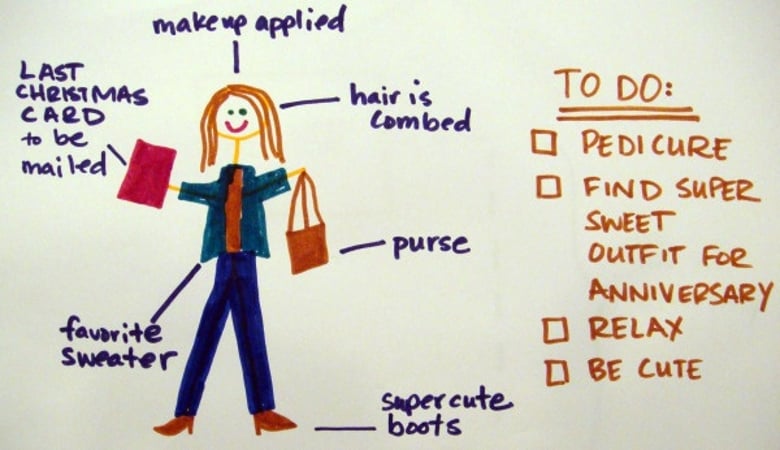 makeup applied
LAST
CHRISTMAS
CARD
to be
mailed
hair is
combed
purse
favorite
sweater
super cute
boots
TO DO:
PEDICURE
FIND SUPER
SWEET
OUTFIT FOR
ANNIVERSARY
RELAX
BE CUTE